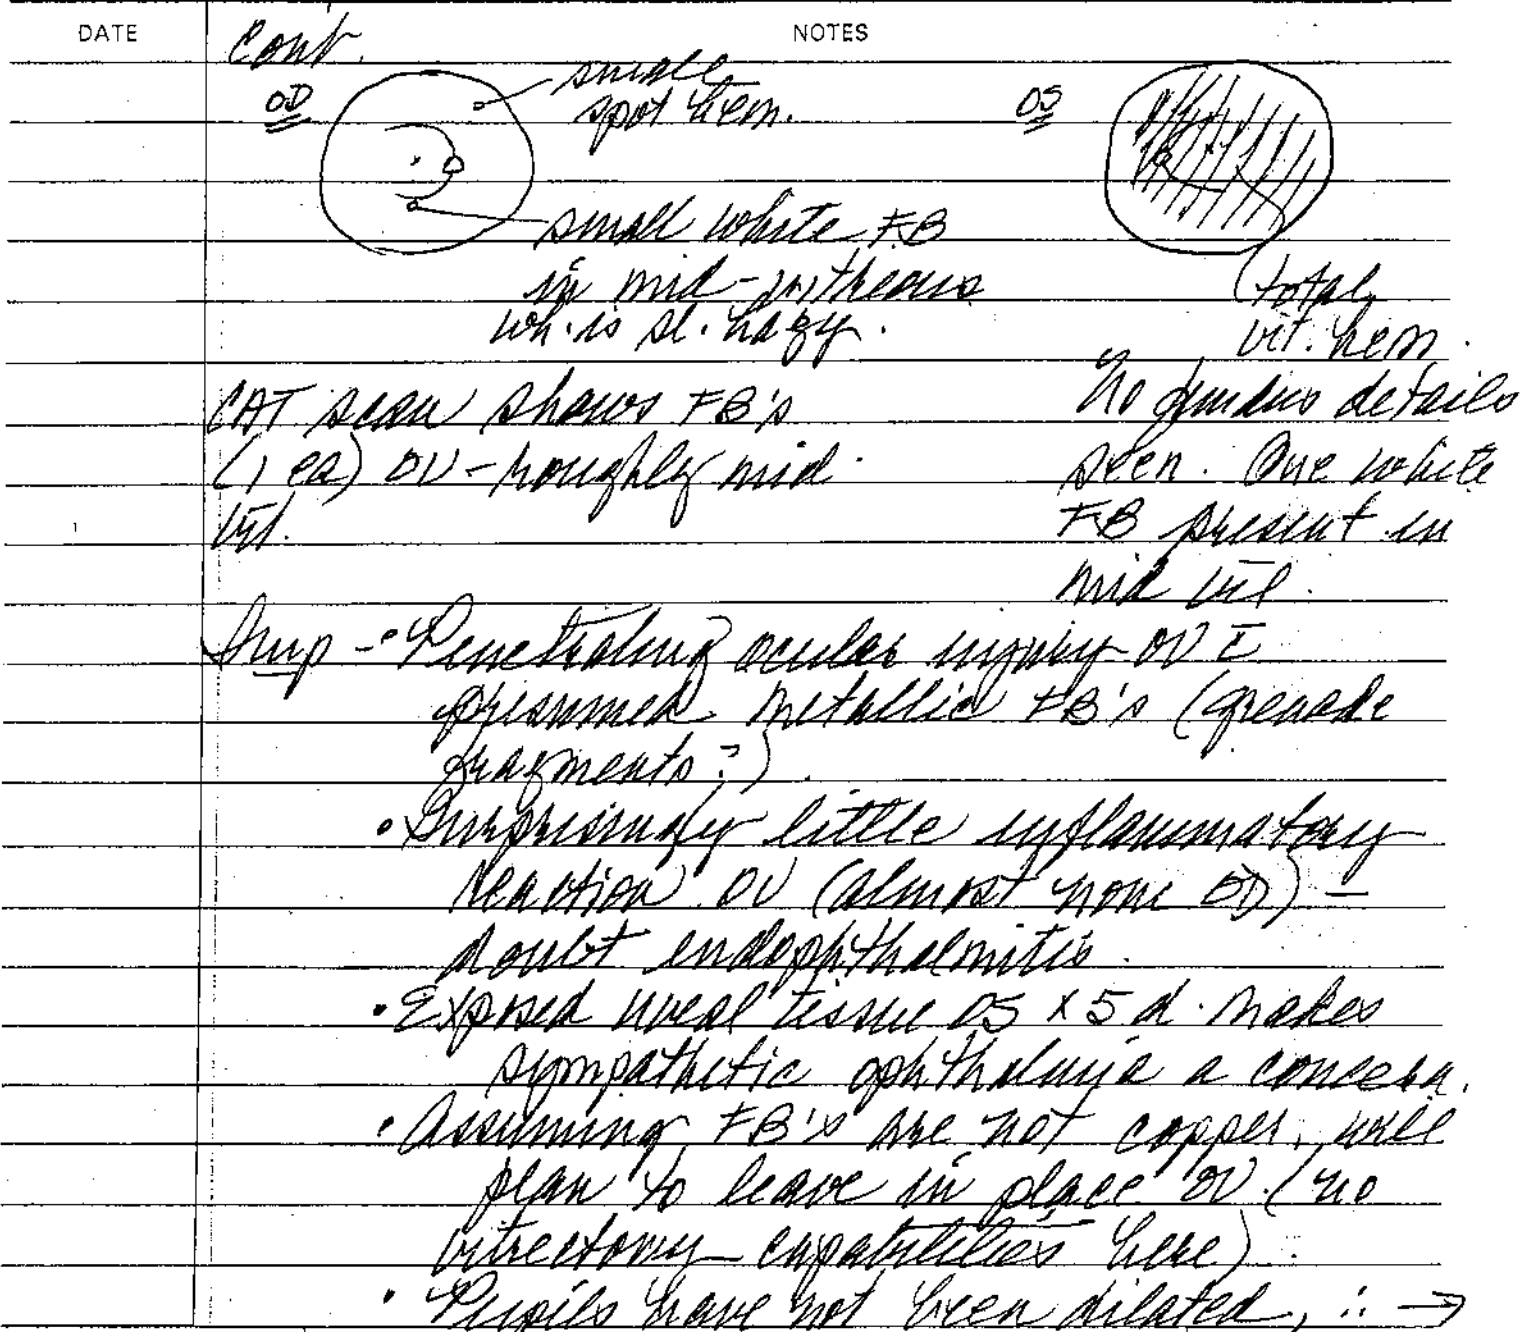 DATE NOTES
Cont.
OD
small
spot hem.
small white FB
in mid-vitreous
wh. is sl. hazy.
OS
(total
vit. hem.
no fundus details
seen. One white
FB present in
mid vit.
CAT scan shows FB's
(1 ea) OU - roughly mid
vit.
Imp - • Penetrating ocular injury OU c̄
presumed metallic FB's (grenade
fragments?).
• Surprisingly little inflammatory
reaction OU (almost none OD) -
doubt endophthalmitis.
• Exposed uveal tissue OS x 5 d. makes
sympathetic ophthalmia a concern.
• Assuming FB's are not copper, will
plan to leave in place OU (no
vitrectomy capabilities here).
• Pupils have not been dilated, ∴ →